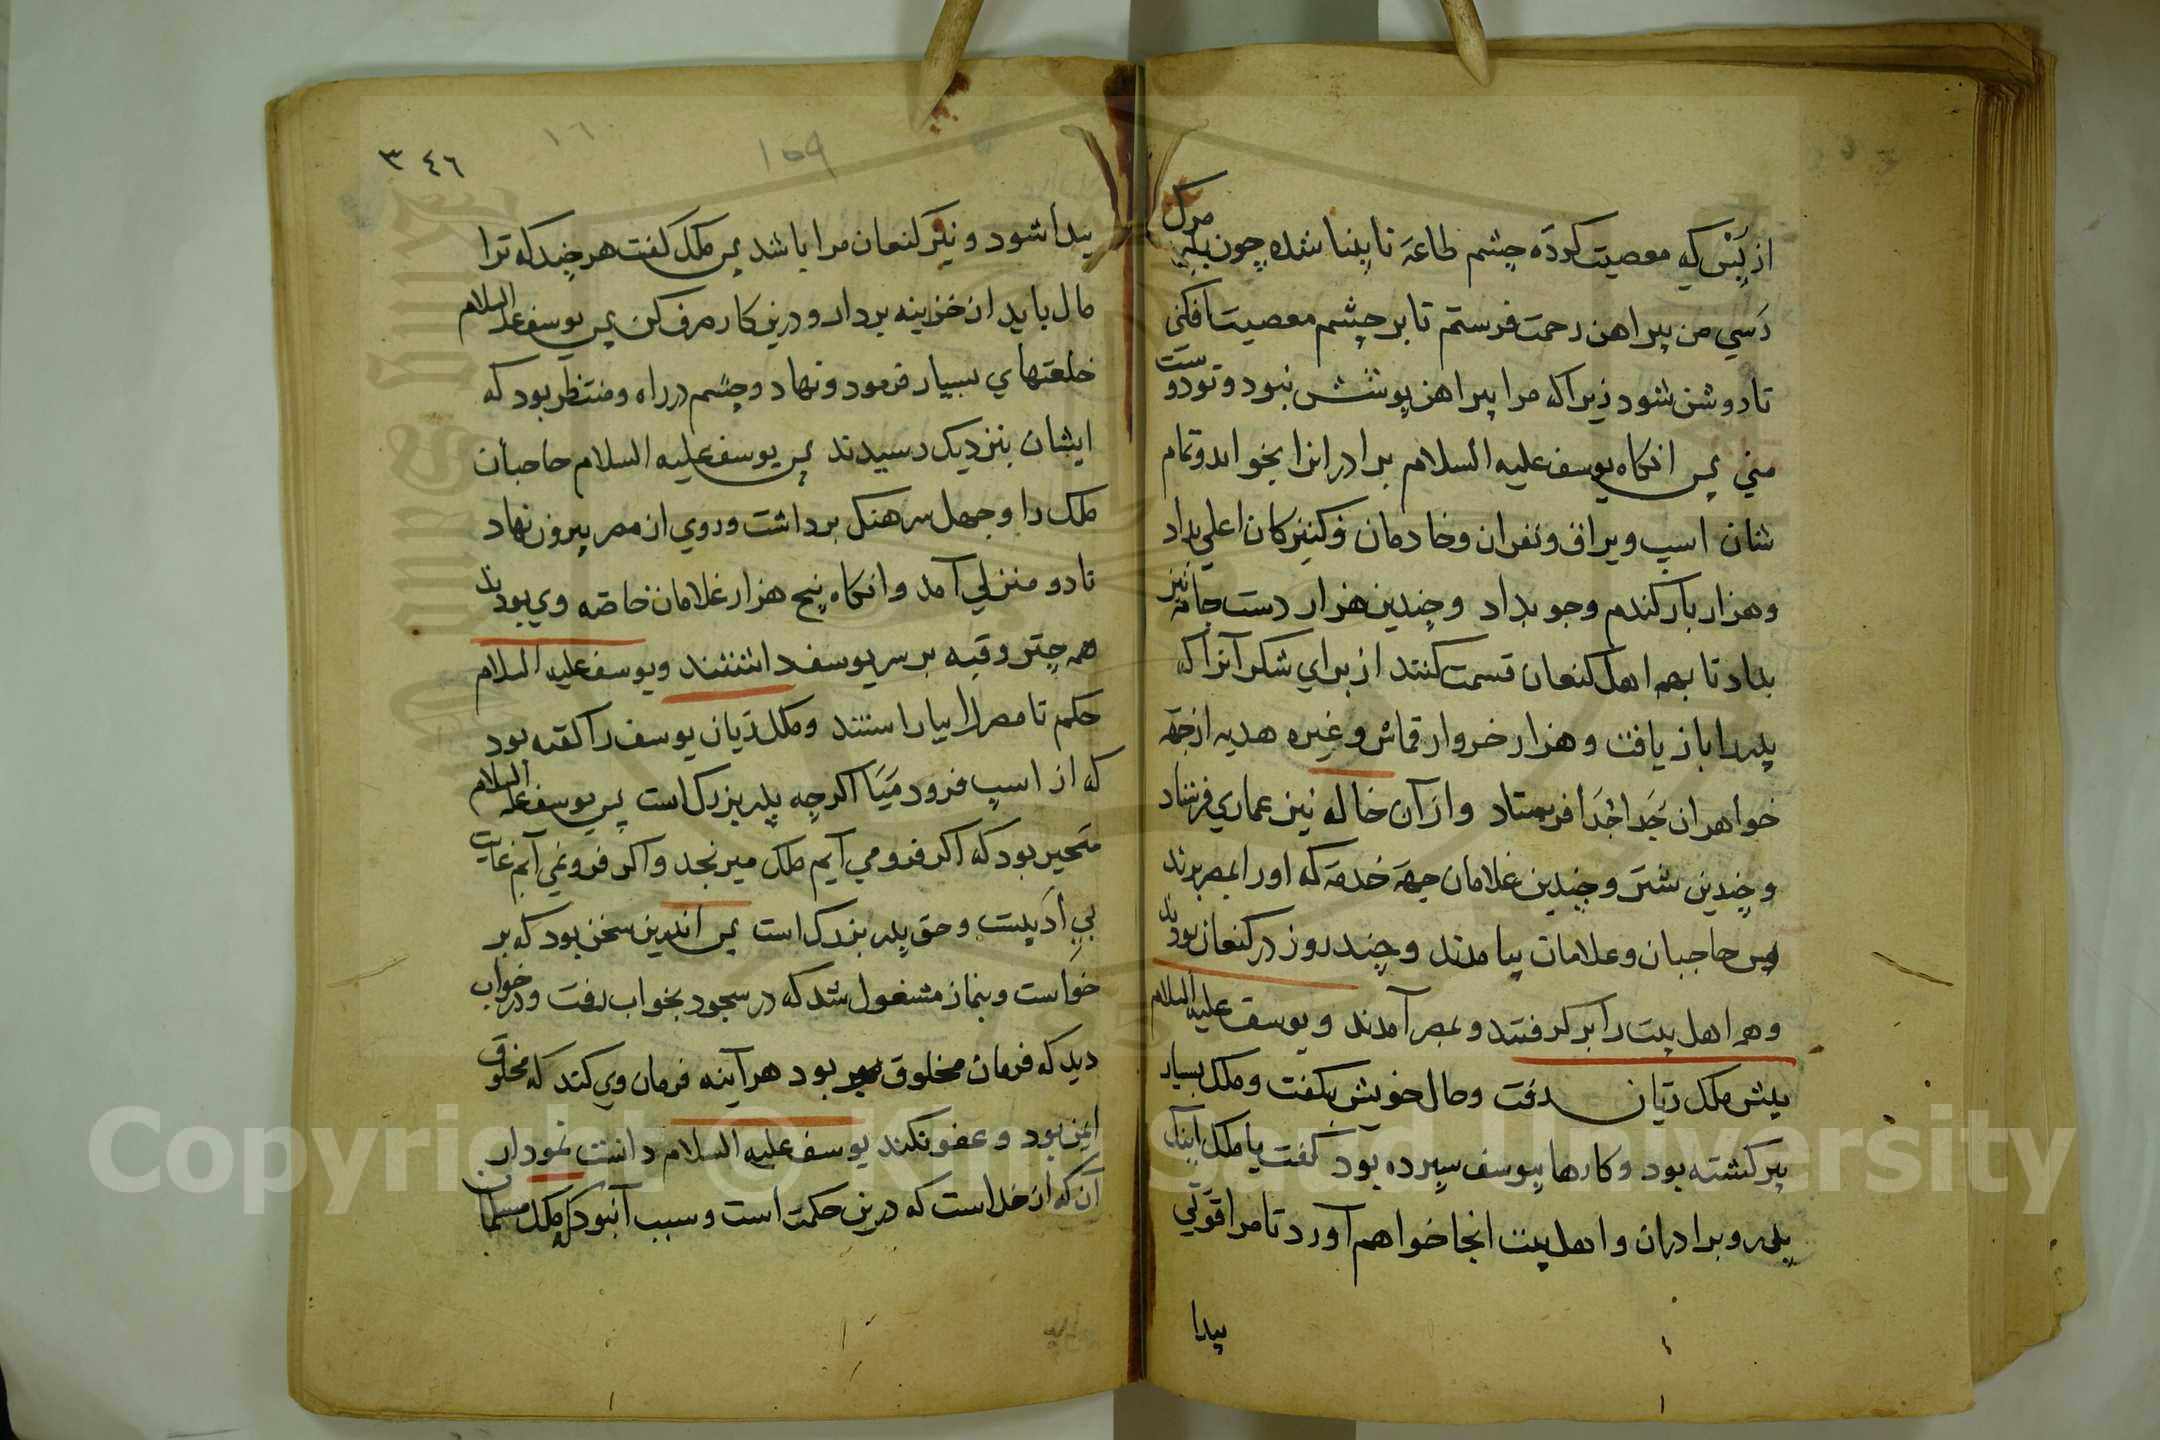 از بس که معصیت کرده چشم طاعة نابینا شده چون بدر مرک
رسی من پیراهن رحمت فرستم تا بر چشم معصیت افکنی
تا روشن شود زیرا که مرا پیراهن پوشش نبود و تو دوست
منی پس انکاه یوسف علیه السلام برادرانرا بخواند و تمام
شان اسپ و یراق و نفران و خادمان و کنیزکان اعلی بداد
و هزار بار کندم و جو بداد و چندین هزار دست جامه نیز
بداد تا بهمه اهل کنعان قسمت کنند از برای شکر آنرا که
پدر را باز یافت و هزار خروار قماش و غیره هدیه از جهة
خواهران جدا جدا فرستاد و از آن خاله نیز عماری فرستاد
و چندین شتر و چندین غلامان جهة خدمة که اورا بمصر برند
پس حاجبان و غلامان بیامدند و چند روز در کنعان بودند
و همه اهل بیت را بر کرفتند و بمصر آمدند و یوسف علیه السلام
پیش ملک ریان رفت و حال خویش بکفت و ملک بسیار
پیر کشته بود و کارها بیوسف سپرده بود کفت یا ملک اینک
پدر و برادران و اهل بیت انجا خواهم آورد تا مرا قوتی
پیدا
٣٤٦
١٦
159
پیدا شود و نیز کنعان مرا باشد پس ملک کفت هر چند که ترا
مال باید از خزینه بردار و درین کار صرف کن پس یوسف علیه السلام
خلعتهای بسیار فرمود و نهاد و چشم در راه و منتظر بود که
ایشان بنزدیک رسیدند پس یوسف علیه السلام حاجبان
ملک را و چهل سرهنک برداشت و روی از مصر بیرون نهاد
تا دو منزلی آمد و انکاه پنج هزار غلامان خاصه وی بودند
همه چتر و قبه بر سر یوسف داشتند و یوسف علیه السلام
حکم تا مصر را بیاراستند و ملک ریان یوسف را کفته بود
که از اسپ فرود میا اکر چه پدر بزرک است پس یوسف علیه السلام
متحیر بود که اکر فرو می آیم ملک میرنجد و اکر فرو نمی آیم غایت
بی أدبیست و حق پدر بزرک است پس اندرین سخن بود که بر
خواست و بنماز مشغول شد که در سجود بخواب رفت و در خواب
دید که فرمان مخلوق بود هر آینه فرمان وی کند که مخلوق
ایمن بود و عفو نکند یوسف علیه السلام دانست نمودار
آن که از خداست که درین حکمت است و سبب آنبود که ملک مسلمان
Copyright © King Saud University